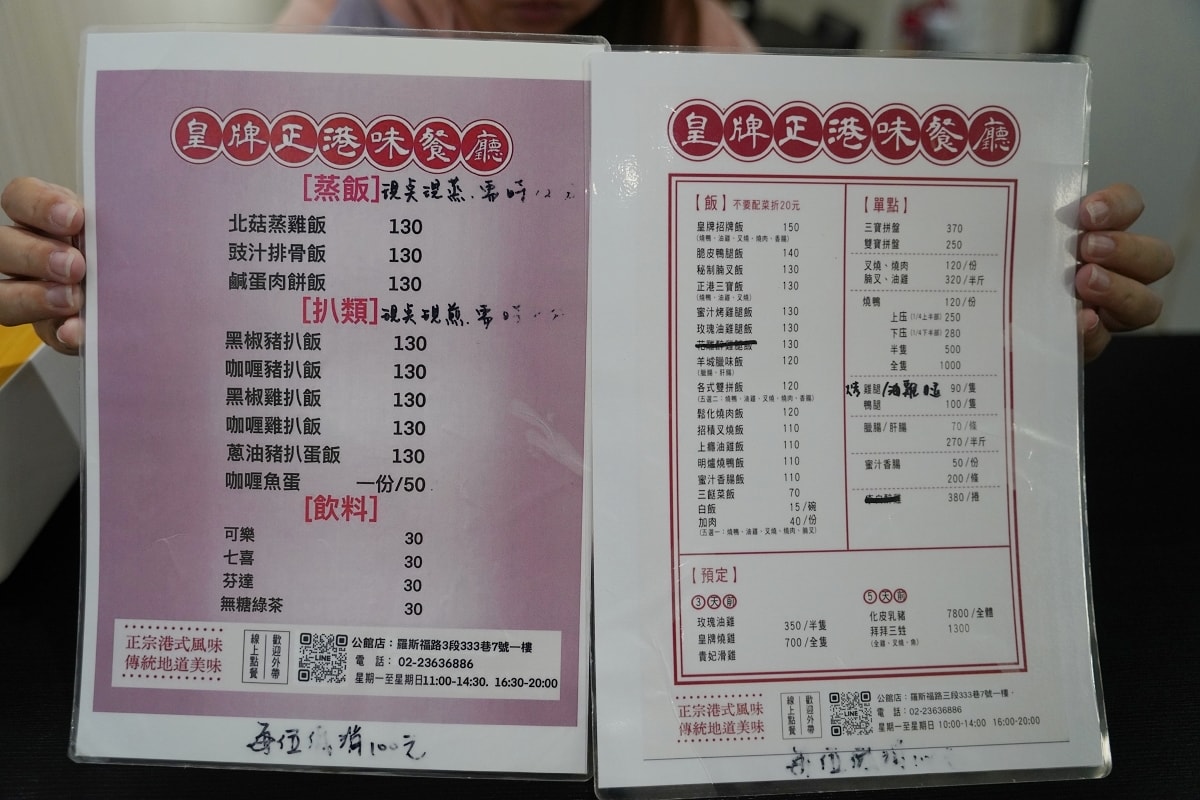 皇牌正港味餐廳
[蒸飯]現点現蒸.需時
北菇蒸雞飯 130
豉汁排骨飯 130
鹹蛋肉餅飯 130
[扒類]現点現煎.需時
黑椒豬扒飯 130
咖喱豬扒飯 130
黑椒雞扒飯 130
咖喱雞扒飯 130
蔥油豬扒蛋飯 130
咖喱魚蛋 一份/50
[飲料]
可樂 30
七喜 30
芬達 30
無糖綠茶 30
正宗港式風味
傳統地道美味
線上點餐
歡迎外帶
LINE
公館店：羅斯福路3段333巷7號一樓
電 話： 02-23636886
星期一至星期日11:00-14:30. 16:30-20:00
每位 消100元
皇牌正港味餐廳
【飯】不要配菜折20元
皇牌招牌飯 150
(燒鴨、油雞、叉燒、燒肉、香腸)
脆皮鴨腿飯 140
秘制腩叉飯 130
正港三寶飯 130
(燒鴨、油雞、叉燒)
蜜汁烤雞腿飯 130
玫瑰油雞腿飯 130
花雕醉雞腿飯 130
羊城臘味飯 120
(臘腸、肝腸)
各式雙拼飯 120
(五選二：燒鴨、油雞、叉燒、燒肉、香腸)
鬆化燒肉飯 120
招積叉燒飯 110
上癮油雞飯 110
明爐燒鴨飯 110
蜜汁香腸飯 110
三餸菜飯 70
白飯 15/碗
加肉 40/份
(五選一：燒鴨、油雞、叉燒、燒肉、腩叉)
【單點】
三寶拼盤 370
雙寶拼盤 250
叉燒、燒肉 120/份
腩叉、油雞 320/半斤
燒鴨 120/份
上庄(1/4上半部) 250
下庄(1/4下半部) 280
半隻 500
全隻 1000
烤雞腿/油雞腿 90/隻
鴨腿 100/隻
臘腸/肝腸 70/條
270/半斤
蜜汁香腸 50/份
200/條
380/捲
【預定】
3天前
玫瑰油雞 350/半隻
皇牌燒雞 700/全隻
貴妃滑雞
5天前
化皮乳豬 7800/全體
拜拜三牲 1300
(全雞、叉燒、魚)
正宗港式風味
傳統地道美味
線上點餐
歡迎外帶
LINE
公館店：羅斯福路三段333巷7號一樓
電 話：02-23636886
星期一至星期日 10:00-14:00 16:00-20:00
每位